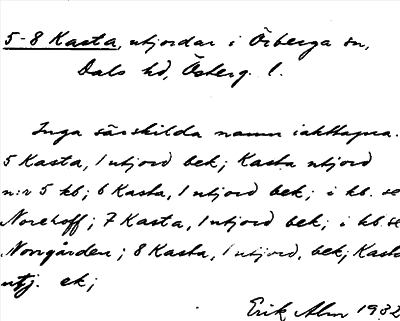 5-8 Kasta, utjordar i Örberga sn,
Dals hd, Österg. l.
Inga särskilda namn iakttagna.
5 Kasta, 1 utjord bek; Kasta utjord
n:r 5 kb; 6 Kasta, 1 utjord bek; i kb. se
Norekoff; 7 Kasta, 1 utjord bek; i kb. se
Norrgården; 8 Kasta, 1 utjord, bek; Kasta
utj. ek;
Erik Alm 1932